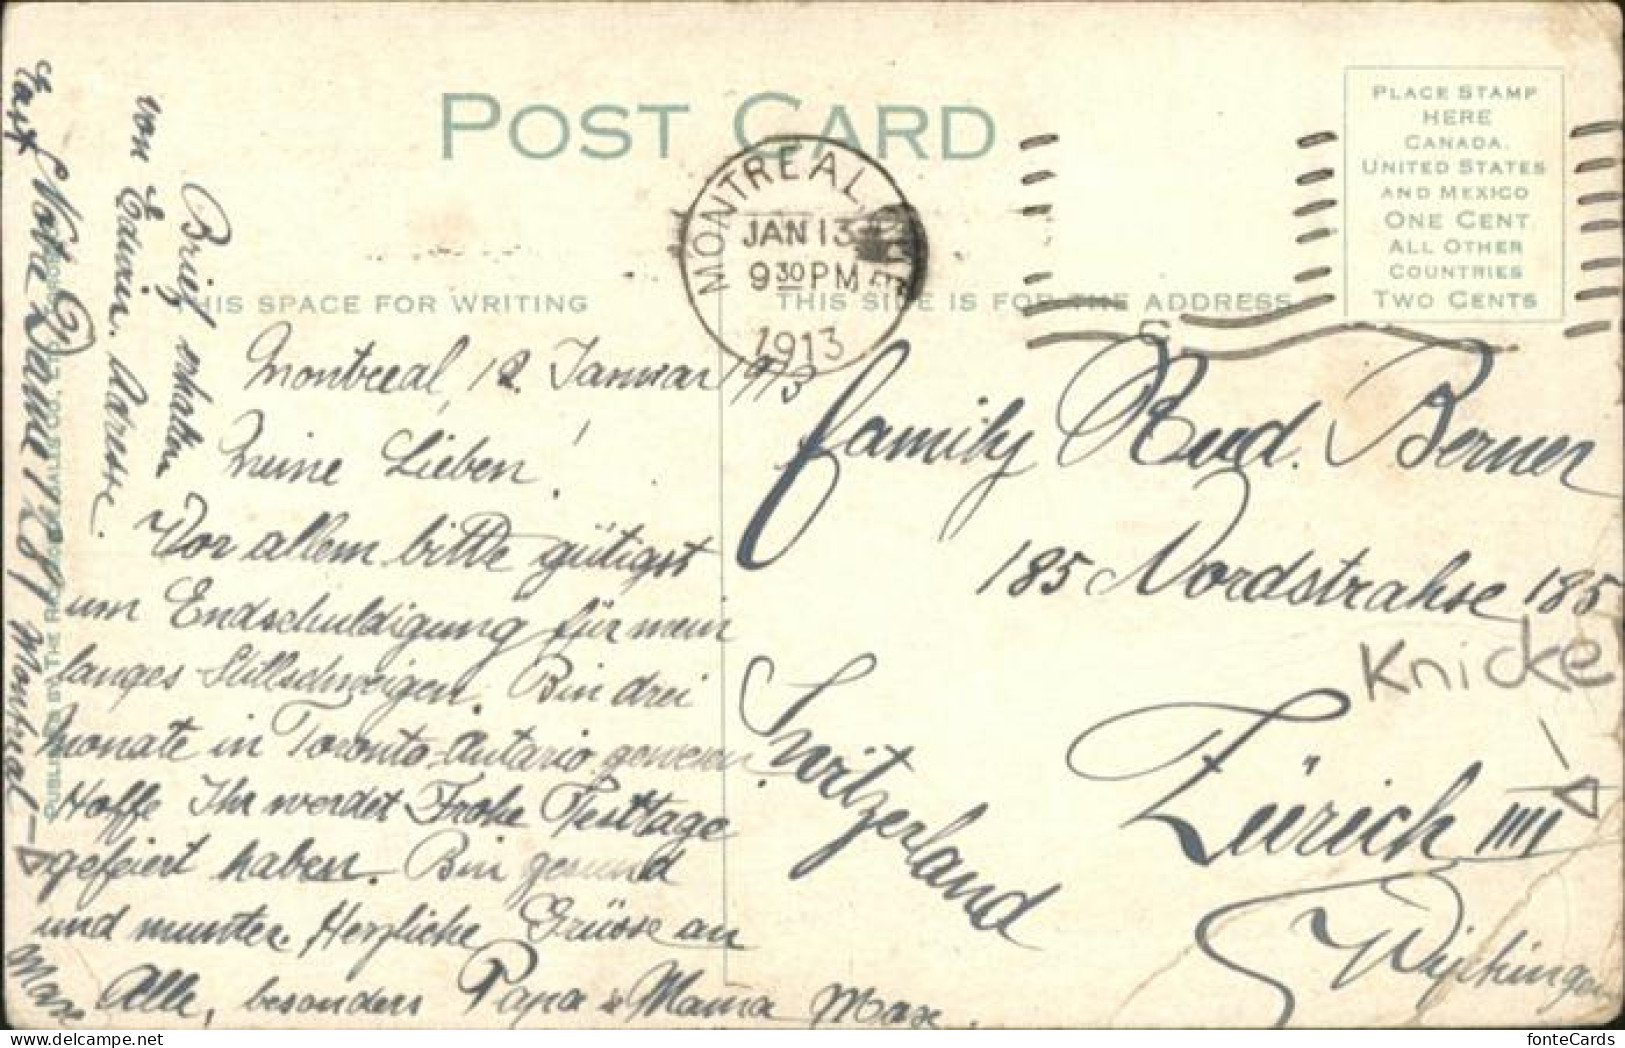 POST CARD
PLACE STAMP
HERE
CANADA,
UNITED STATES
AND MEXICO
ONE CENT
ALL OTHER
COUNTRIES
TWO CENTS
MONTREAL, QUE
JAN 13
9 30 PM
1913
THIS SPACE FOR WRITING
THIS SIDE IS FOR THE ADDRESS
Montreal, 12. Januar 1913
Meine Lieben!
Vor allem bitte gütigst
um Endschuldigung für mein
langes Stillschweigen. Bin drei
Monate in Toronto-Ontario gewesen.
Hoffe Ihr werdet Frohe Festtage
gefeiert haben. Bin gesund
und munter. Herzliche Grüsse an
Alle, besonders Papa & Mama Max.
Brief erhalten
von Edwin. Adresse.
East Notre Dame Montreal
Max
PUBLISHED BY THE
Family Rud. Berner
185 Nordstrahse 185
Zürich IIII
Wipkingen
Switzerland
Knicke
fonteCards